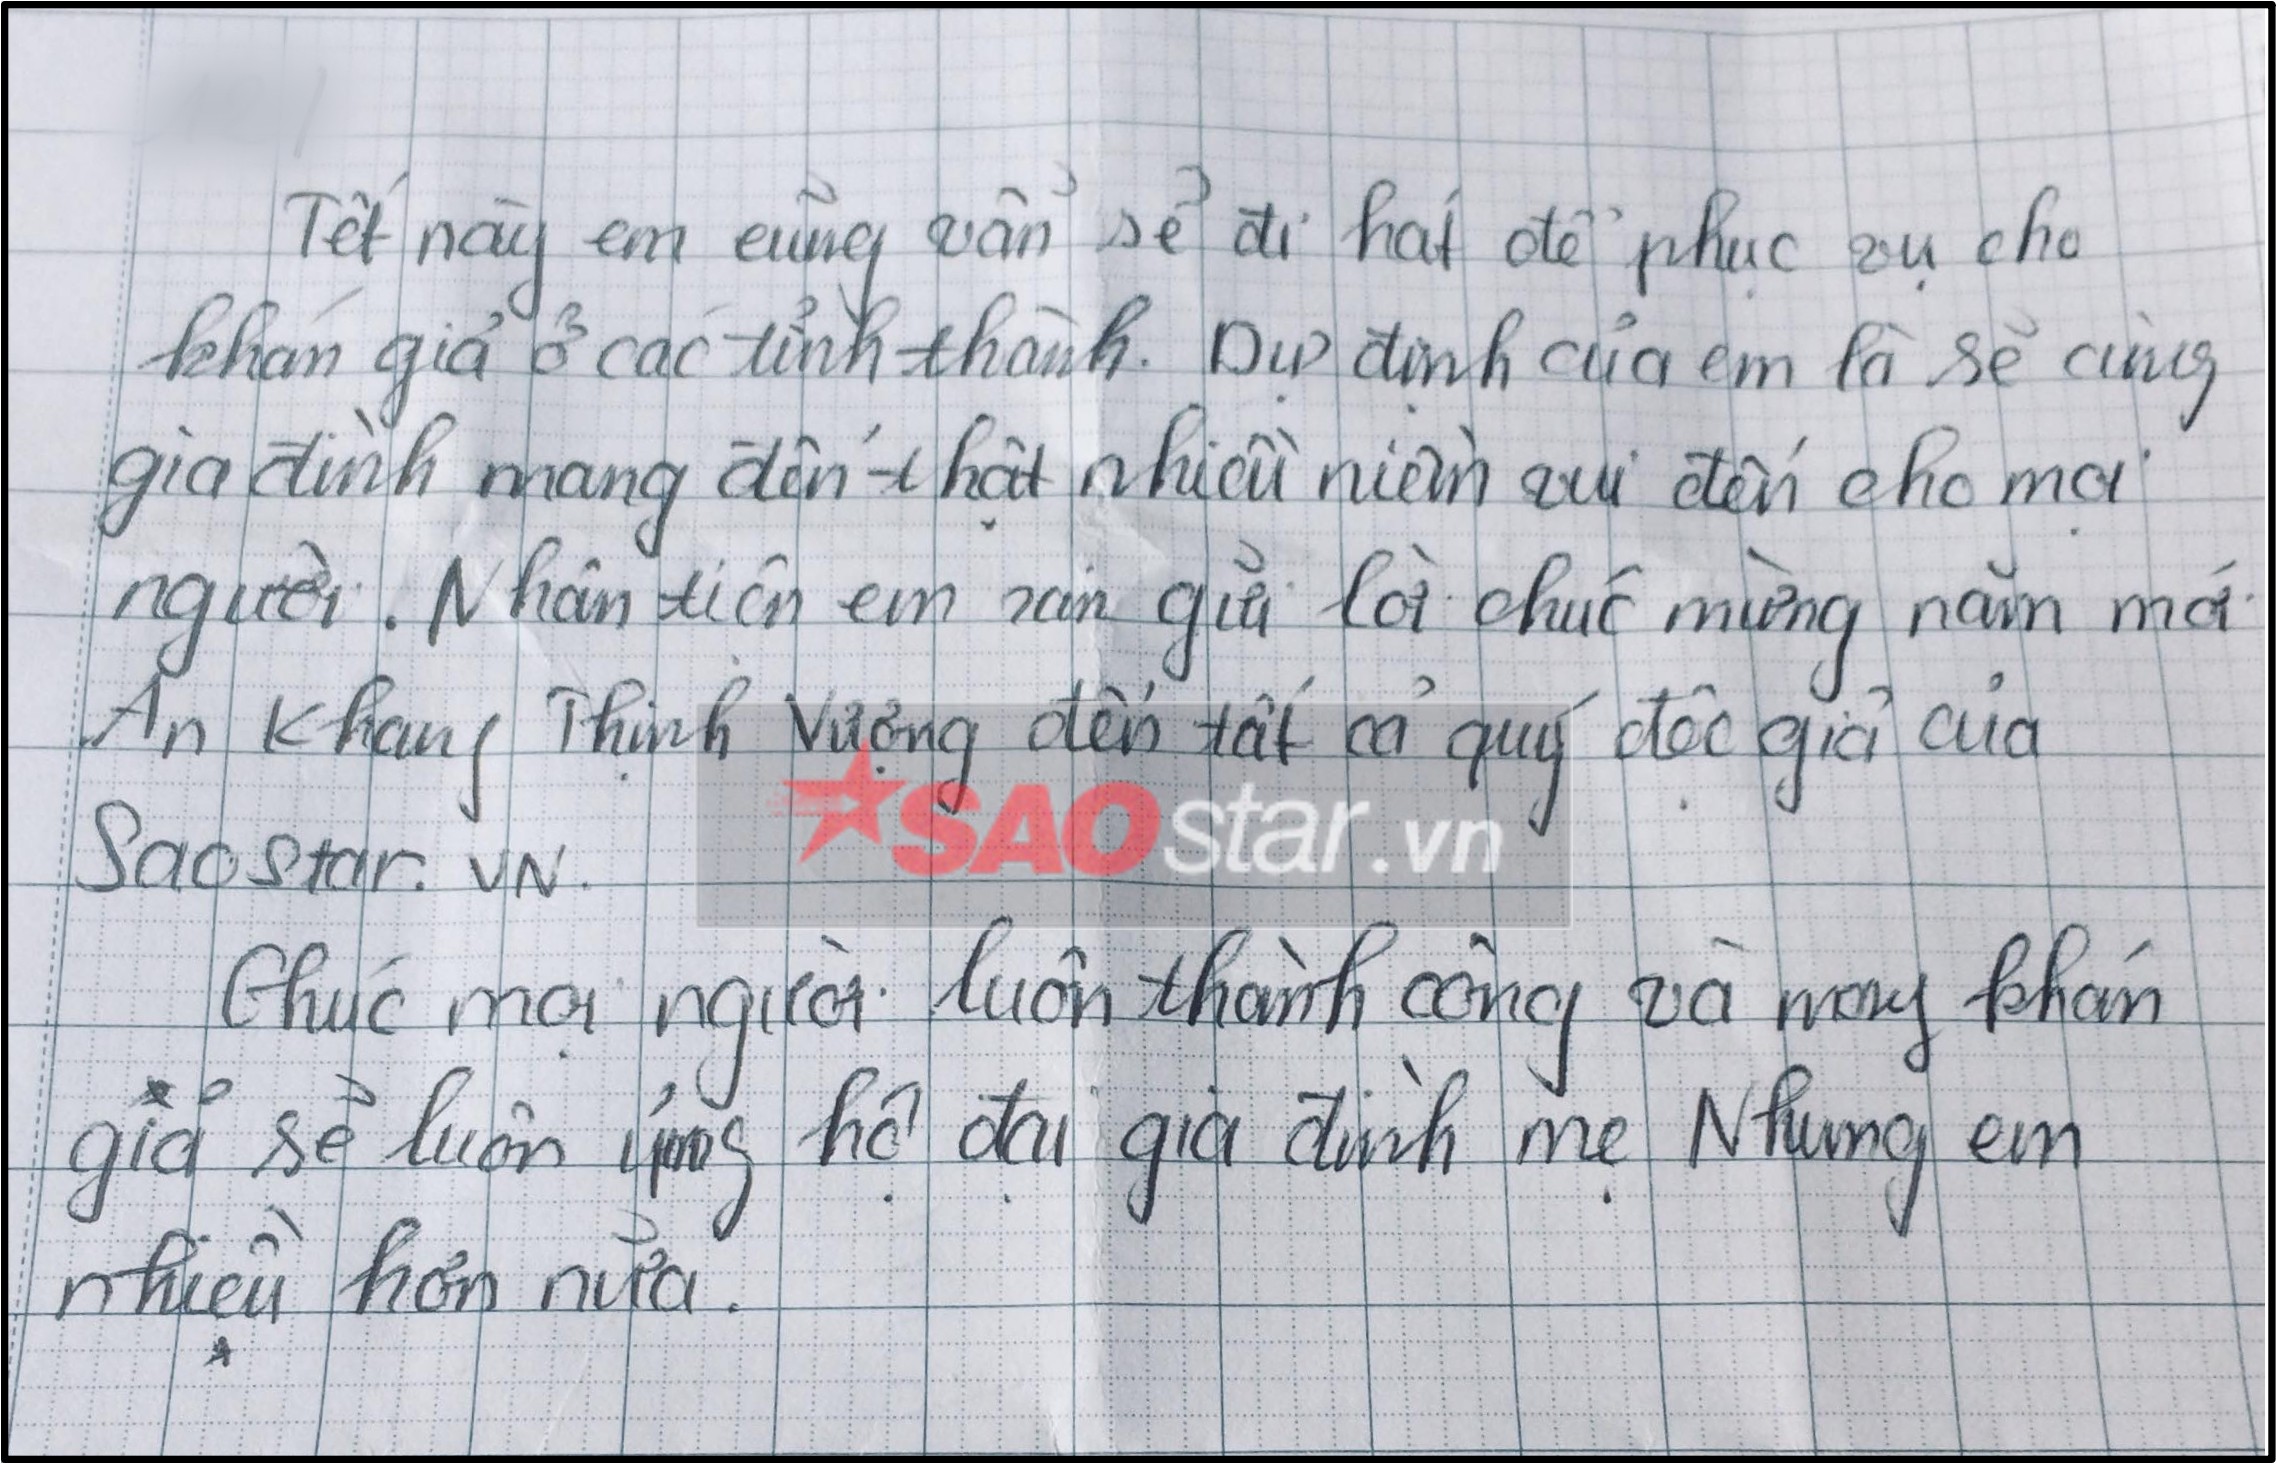 Tết này em cũng vẫn sẽ đi hát để phục vụ cho
khán giả ở các tỉnh thành. Dự định của em là sẽ cùng
gia đình mang đến thật nhiều niềm vui đến cho mọi
người. Nhân tiện em xin gửi lời chúc mừng năm mới
An Khang Thịnh Vượng đến tất cả quý độc giả của
SAOstar.vn
Saostar. VN.
Chúc mọi người luôn thành công và mong khán
giả sẽ luôn ủng hộ đại gia đình mẹ Nhung em
nhiều hơn nữa.